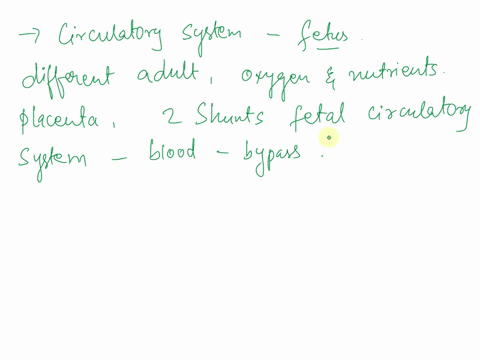 → Circulatory System - fetus.
different adult, oxygen & nutrients.
placenta, 2 Shunts fetal circulatory
System - blood - bypass .